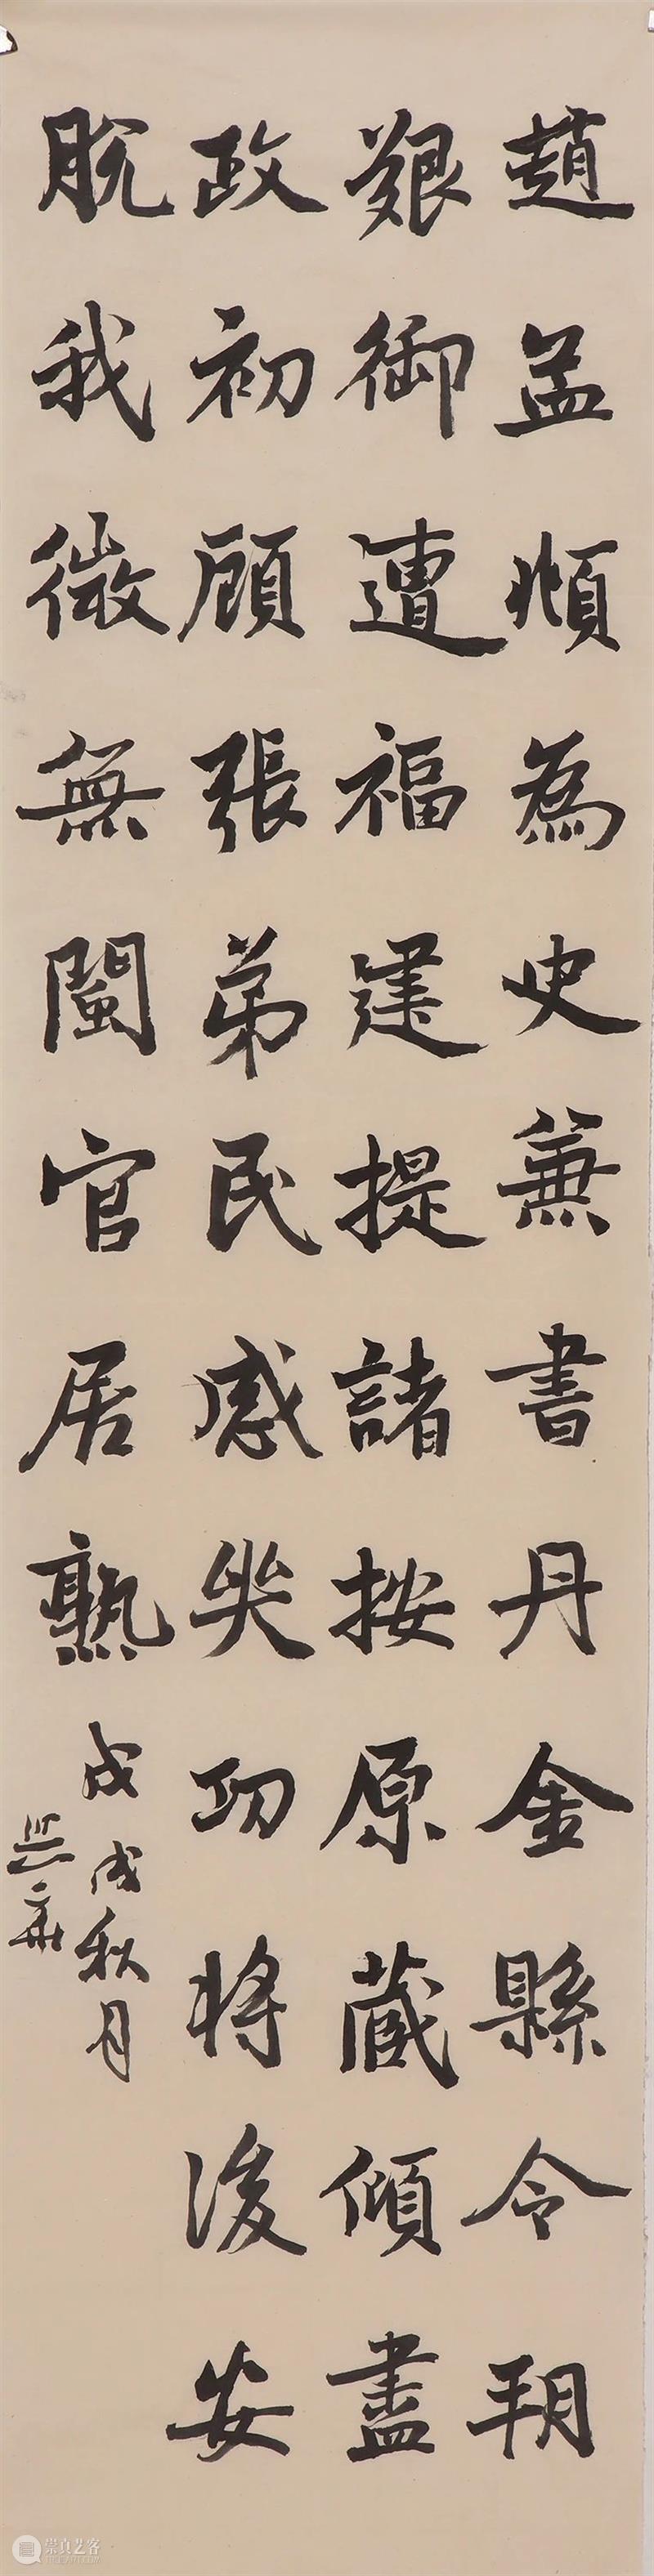 趙孟頫為史兼書丹金縣令翔
艱御遭福建提諸按原藏傾盡
政初顧張弟民感失功将後安
脫我微無閩官居熟
戊戌秋月
崇真艺客